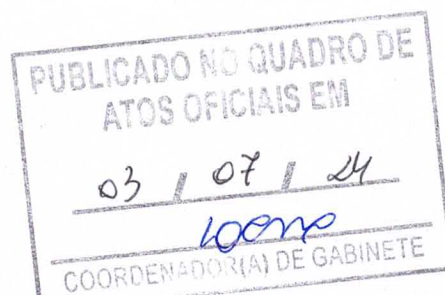 PUBLICADO NO QUADRO DE
ATOS OFICIAIS EM
03 / 07 / 24
COORDENADOR(A) DE GABINETE